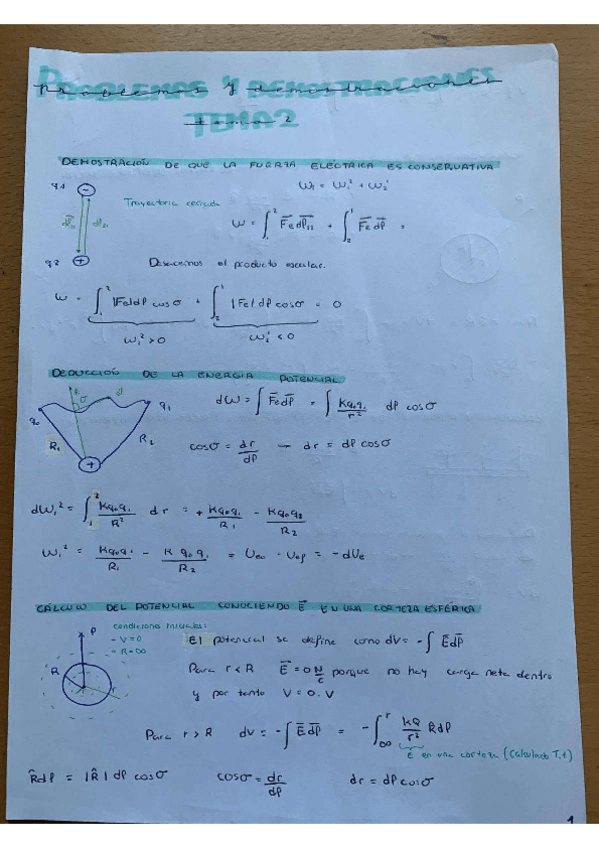 PROBLEMAS Y DEMOSTRACIONES
TEMA 2
DEMOSTRACIÓN DE QUE LA FUERZA ELÉCTRICA ES CONSERVATIVA
q1 −
Trayectoria cerrada
W_T = W₁² + W₂¹
W = ∫₁² F⃗e dl⃗₁₂ + ∫₂¹ F⃗e dl⃗
q2 +
Desarrollamos el producto escalar.
W = ∫₁² |Fe| dl cos σ + ∫₂¹ |Fe| dl cos σ = 0
W₁² > 0 W₂¹ < 0
DEDUCCIÓN DE LA ENERGÍA POTENCIAL
q₀ q₁ R₁ R₂ + σ
dW = ∫ F⃗e dl⃗ = ∫ Kq₀q₁/r² dl cos σ
cos σ = dr/dl → dr = dl cos σ
dW₁² = ∫₁² Kq₀q₁/R² dr = + Kq₀q₁/R₁ − Kq₀q₁/R₂
W₁² = Kq₀q₁/R₁ − K q₀ q₁/R₂ = Ueo − Uef = −dUe
CÁLCULO DEL POTENCIAL CONOCIENDO E⃗ EN UNA CORTEZA ESFÉRICA
condiciones iniciales:
- V = 0
- R = ∞
P R r
El potencial se define como dV = −∫ E⃗ dl⃗
Para r < R E⃗ = 0 N/C porque no hay carga neta dentro
y por tanto V = 0 V
Para r > R dV = −∫ E⃗ dl⃗ = −∫∞^r KQ/r² R̂ dl
E en una corteza (Calculado T.1)
R̂ dl = |R̂| dl cos σ cos σ = dr/dl dr = dl cos σ
1